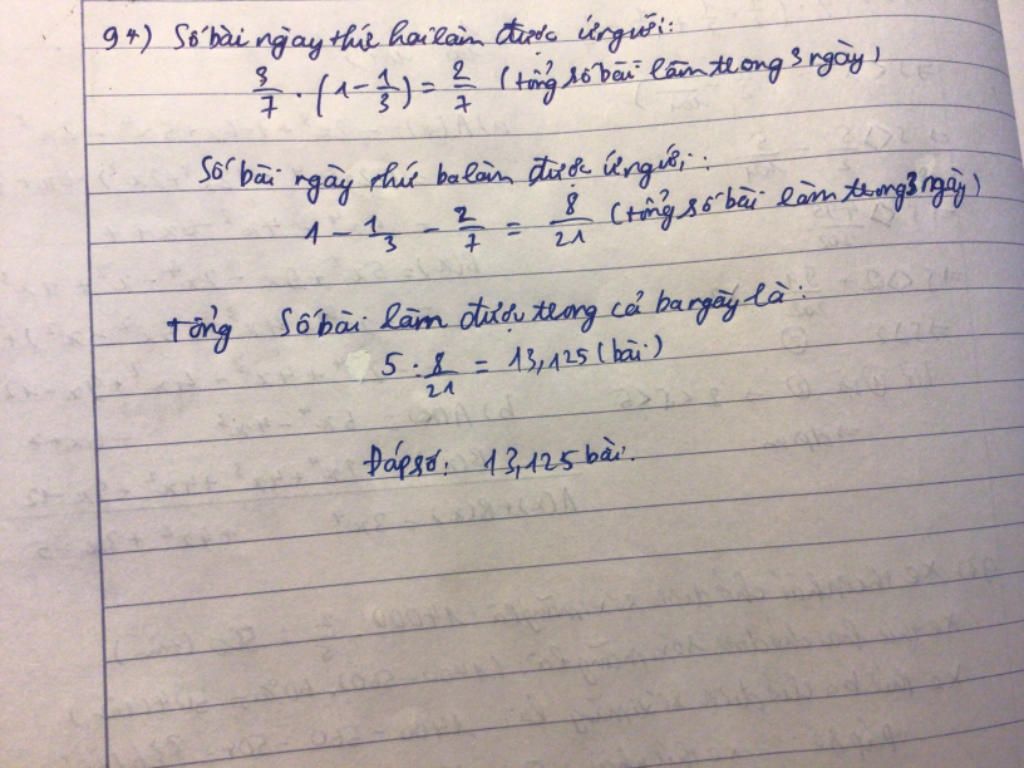 94) Số bài ngày thứ hai làm được ứng với:
3/7 · (1 - 1/3) = 2/7 (tổng số bài làm trong 3 ngày)
Số bài ngày thứ ba làm được ứng với:
1 - 1/3 - 2/7 = 8/21 (tổng số bài làm trong 3 ngày)
tổng Số bài làm được trong cả ba ngày là:
5 : 8/21 = 13,125 (bài)
Đáp số: 13,125 bài.